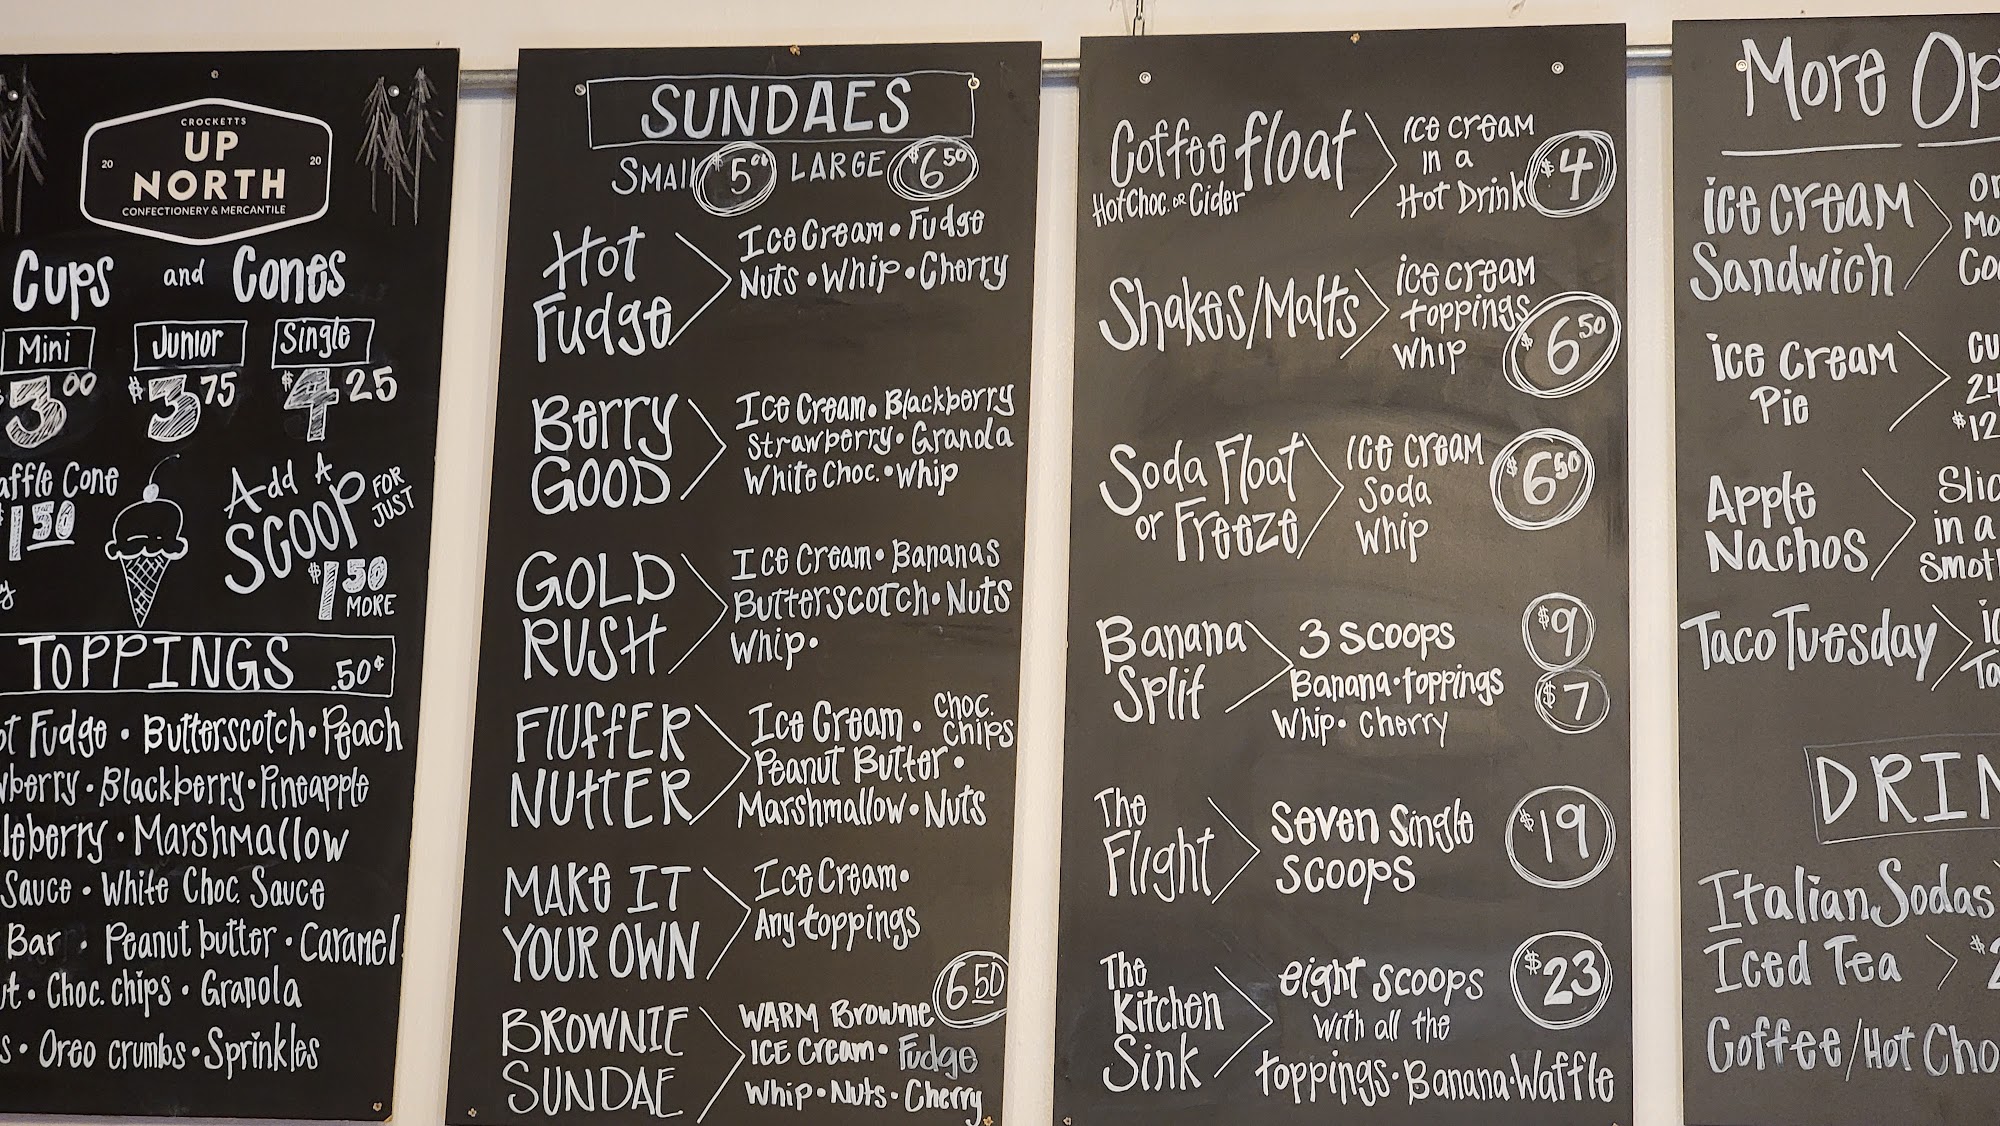 CROCKETTS
20 UP 20
NORTH
CONFECTIONERY & MERCANTILE
Cups and Cones
Mini Junior Single
$3.00 $3.75 $4.25
Waffle Cone
$1.50
Add A
SCOOP FOR JUST
$1.50 MORE
TOPPINGS .50¢
Hot Fudge • Butterscotch • Peach
Blackberry • Pineapple
Marshmallow
Sauce • White Choc. Sauce
Bar • Peanut butter • Caramel
Choc. chips • Granola
Oreo crumbs • Sprinkles
SUNDAES
SMALL $5.00 LARGE $6.50
Hot Fudge
Ice Cream • Fudge
Nuts • Whip • Cherry
Berry GOOD
Ice Cream • Blackberry
Strawberry • Granola
White Choc. • Whip
GOLD RUSH
Ice Cream • Bananas
Butterscotch • Nuts
Whip •
FluffER NuttER
Ice Cream • Choc. chips
Peanut Butter •
Marshmallow • Nuts
MAKE IT YOUR OWN
Ice Cream •
Any toppings
BROWNIE SUNDAE
6.50
WARM Brownie
ICE Cream • Fudge
Whip • Nuts • Cherry
Coffee float
Hot Choc. or Cider
Ice cream
in a
Hot Drink
$4
Shakes/Malts
ice cream
toppings
whip
$6.50
Soda Float
or Freeze
Ice cream
Soda
Whip
$6.50
Banana Split
3 scoops
Banana • toppings
Whip • Cherry
$9
$7
The Flight
Seven Single
scoops
$19
The Kitchen Sink
eight scoops
with all the
toppings • Banana • Waffle
$23
More
ice cream
Sandwich
ice cream
Pie
$12
Apple
Nachos
in a
Taco Tuesday
Italian Sodas
Iced Tea
Coffee/Hot